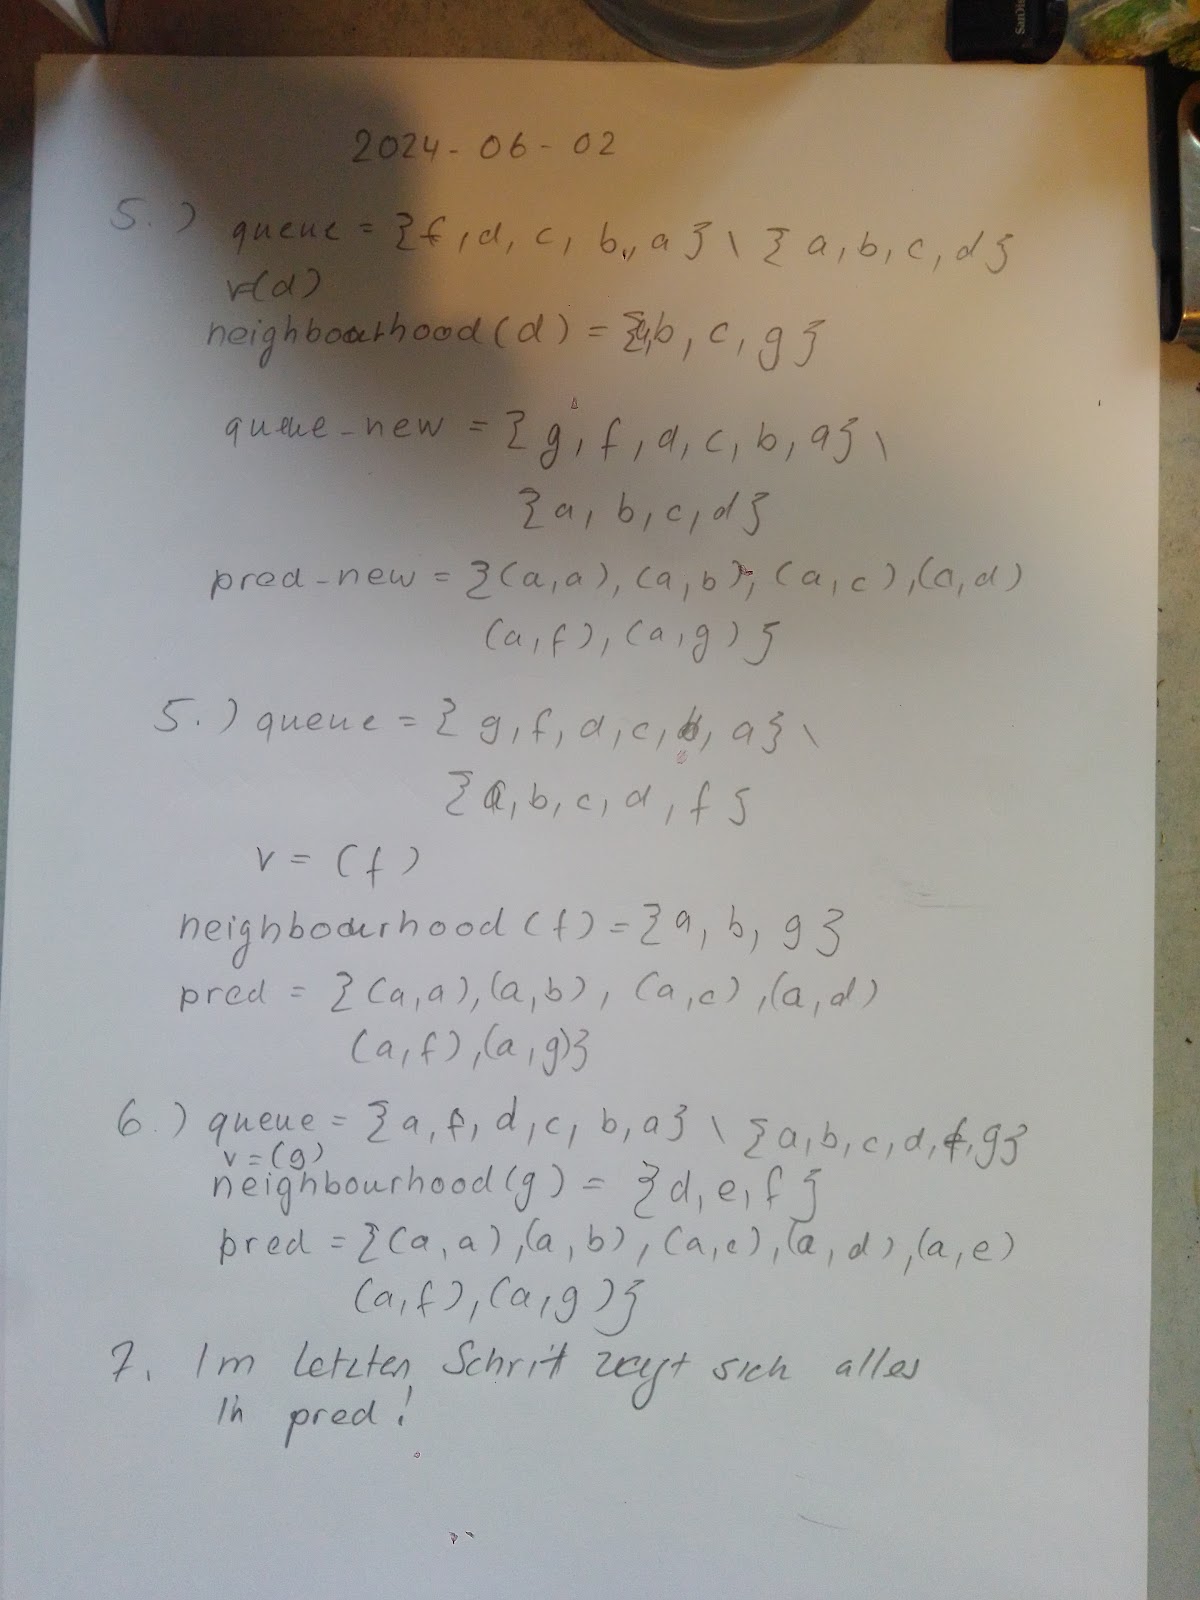 SanDis
2024-06-02
5.) queue = {f, d, c, b, a} \ {a, b, c, d}
v=(d)
neighbourhood(d) = {a,b, c, g}
queue_new = {g, f, d, c, b, a} \
{a, b, c, d}
pred_new = {(a,a), (a,b), (a,c), (a,d)
(a,f), (a,g)}
5.) queue = {g, f, d, c, b, a} \
{a, b, c, d, f}
v = (f)
neighbourhood(f) = {a, b, g}
pred = {(a,a),(a,b), (a,c),(a,d)
(a,f),(a,g)}
6.) queue = {a, f, d, c, b, a} \ {a, b, c, d, f, g}
v=(g)
neighbourhood(g) = {d, e, f}
pred = {(a,a),(a,b), (a,c),(a,d),(a,e)
(a,f),(a,g)}
7. Im letzten Schritt zeigt sich alles
In pred!